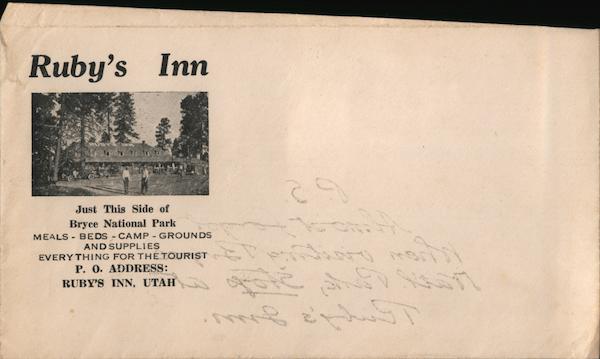 Ruby's Inn
Just This Side of
Bryce National Park
MEALS - BEDS - CAMP - GROUNDS
AND SUPPLIES
EVERYTHING FOR THE TOURIST
P. O. ADDRESS:
RUBY'S INN, UTAH
P.S
When visiting
Nat'l Park, Stop at
Ruby's Inn.